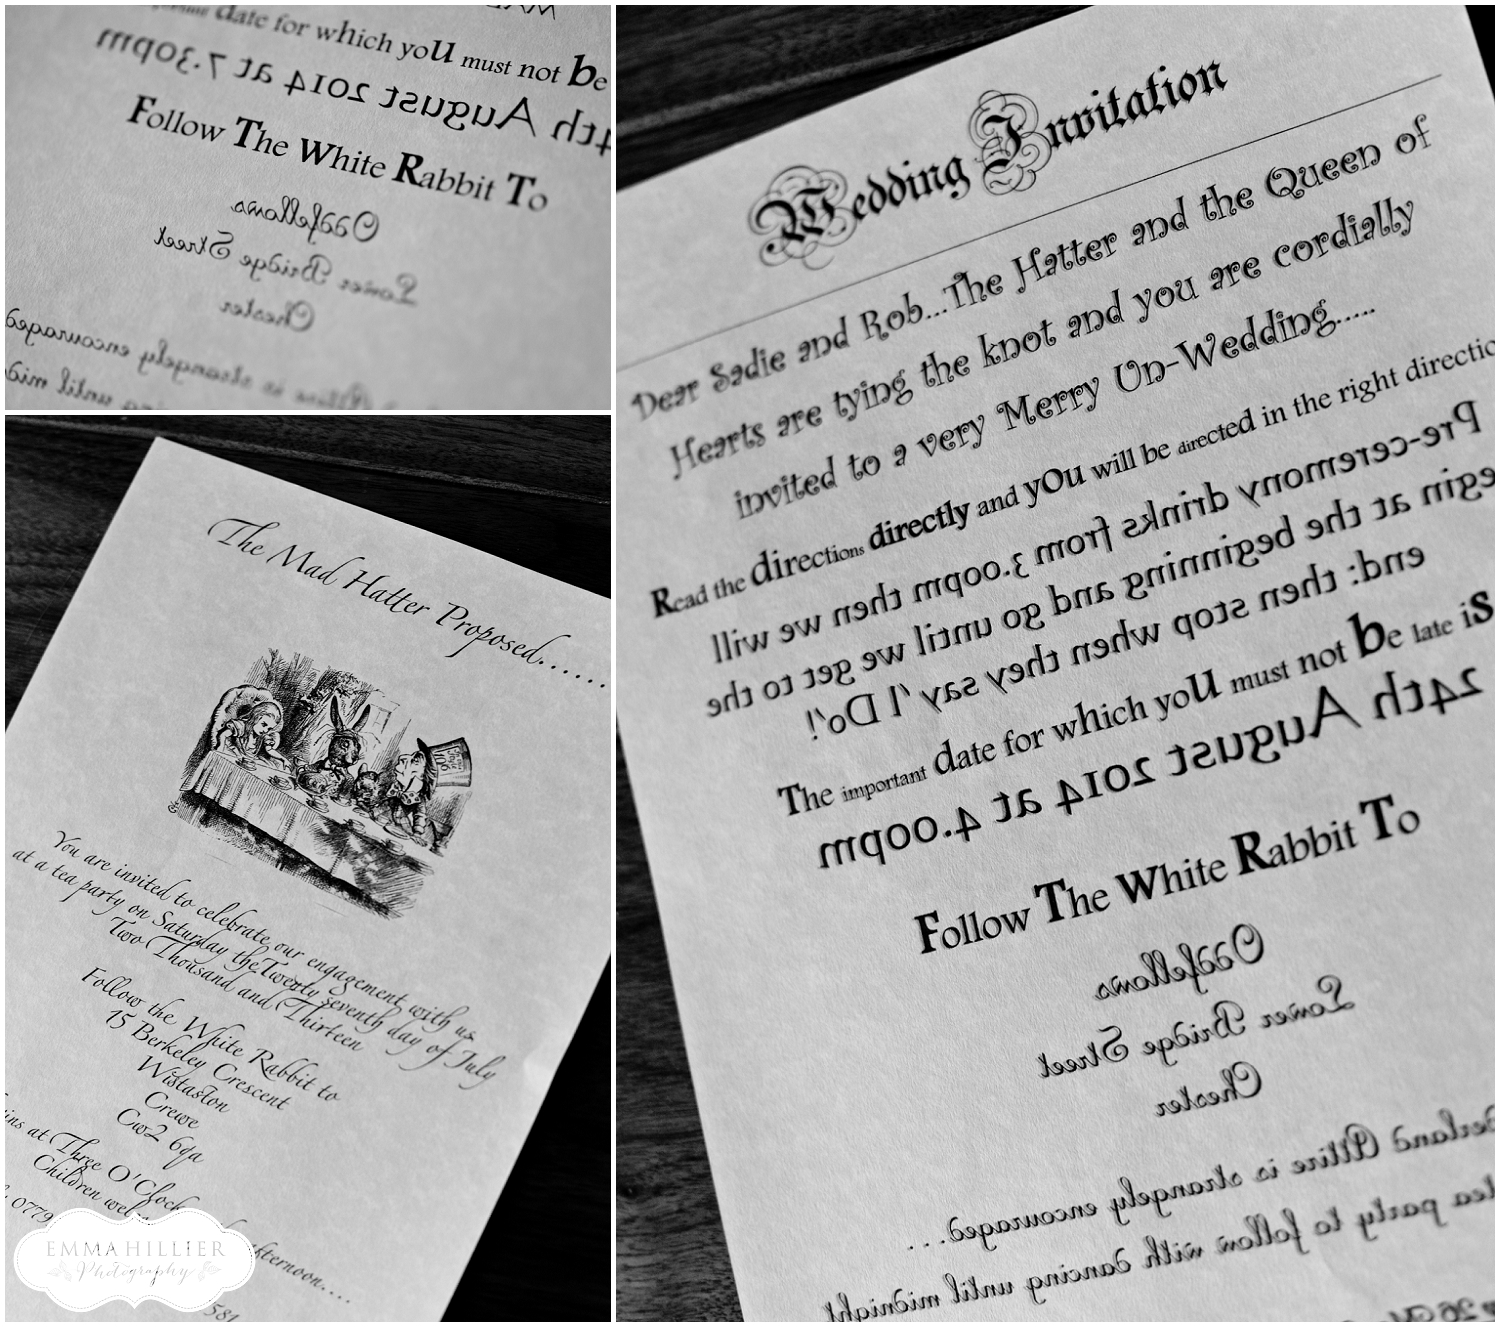 date for which yoU must not be
4th August 2014 at 7.30pm
Follow The White Rabbit To
Oddfellows
Lower Bridge Street
Chester
is strangely encouraged
until mid
The Mad Hatter Proposed......
You are invited to celebrate our engagement with us
at a tea party on Saturday the Twenty seventh day of July
Two Thousand and Thirteen
Follow the White Rabbit to
15 Berkeley Crescent
Wistaston
Crewe
Cw2 6qa
ins at Three O'Clock afternoon....
Children wel
0779
581
EMMAHILLIER
Photography
Wedding Invitation
Dear Sadie and Rob...The Hatter and the Queen of
Hearts are tying the knot and you are cordially
invited to a very Merry Un-Wedding.....
Read the directions directly and yOu will be directed in the right directio
Pre-ceremony drinks from 3.00pm then we will
egin at the beginning and go until we get to the
end: then stop when they say 'I Do'!
The important date for which yoU must not be late is
24th August 2014 at 4.00pm
Follow The White Rabbit To
Oddfellows
Lower Bridge Street
Chester
erland Attire is strangely encouraged...
tea party to follow with dancing until midnight
26